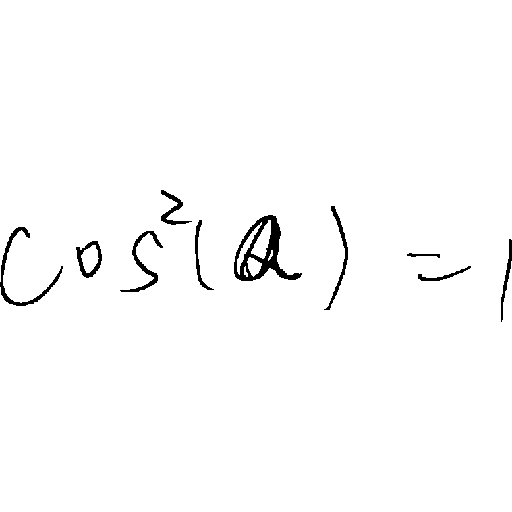 cos²(a) = 1